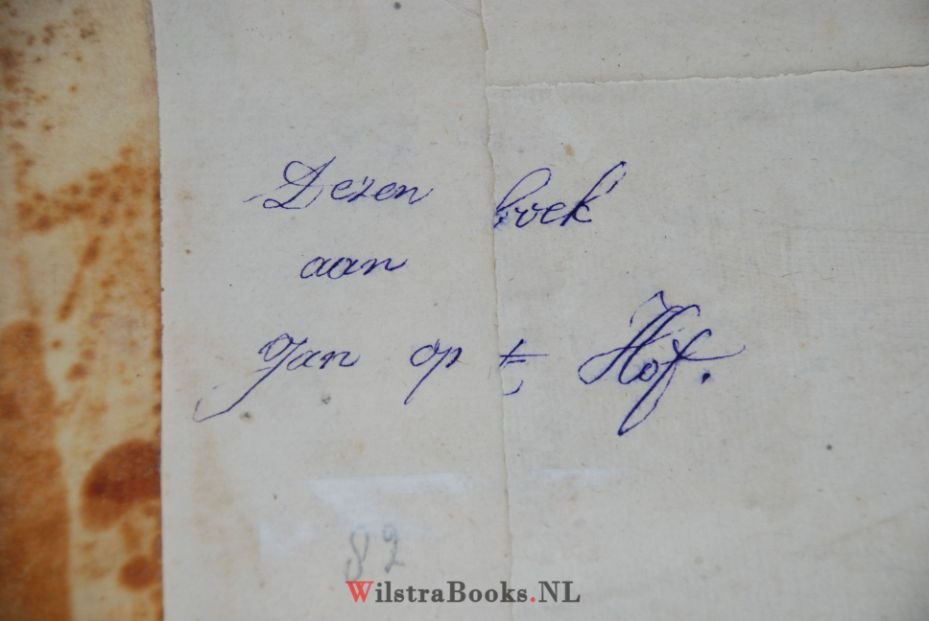 Dezen boek
aan
Jan op t Hof.
82
WilstraBooks.NL